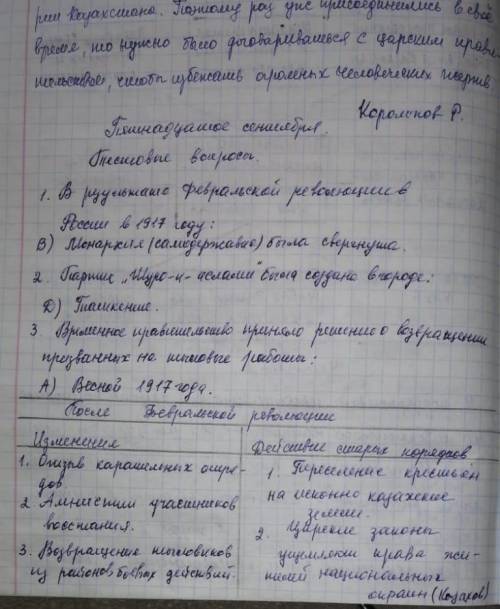 рии Казахстана. Поэтому раз уже присоединились в своё
время, то нужно было договариваться с царским прави
тельством, чтобы избежать огромных человеческих жертв.
Р.
Пятнадцатое сентября.
Тестовые вопросы.
1. В результате Февральской революции в
России в 1917 году:
В) Монархия (самодержавие) была свергнута.
2. Партия „Шуро-и-ислами" была создана в городе:
Д) Ташкенте.
3. Временное правительство приняло решение о возвращении
призванных на тыловые работы:
А) Весной 1917 года.
После Февральской революции
Изменения
1. Отзыв карательных отря-
дов.
2. Амнистия участников
восстания.
3. Возвращение тыловиков
из районов боевых действий.
Действие старых порядков
1. Переселение крестьян
на исконно казахские
земли.
2. Царские законы
ущемляли права жи-
телей национальных
окраин (Казахов)